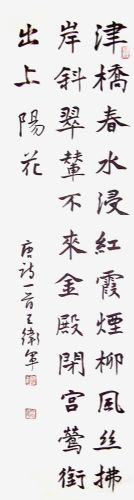 津橋春水浸紅霞煙柳風絲拂
岸斜翠輦不來金殿閉宮鶯銜
出上陽花
唐詩一首王衛軍